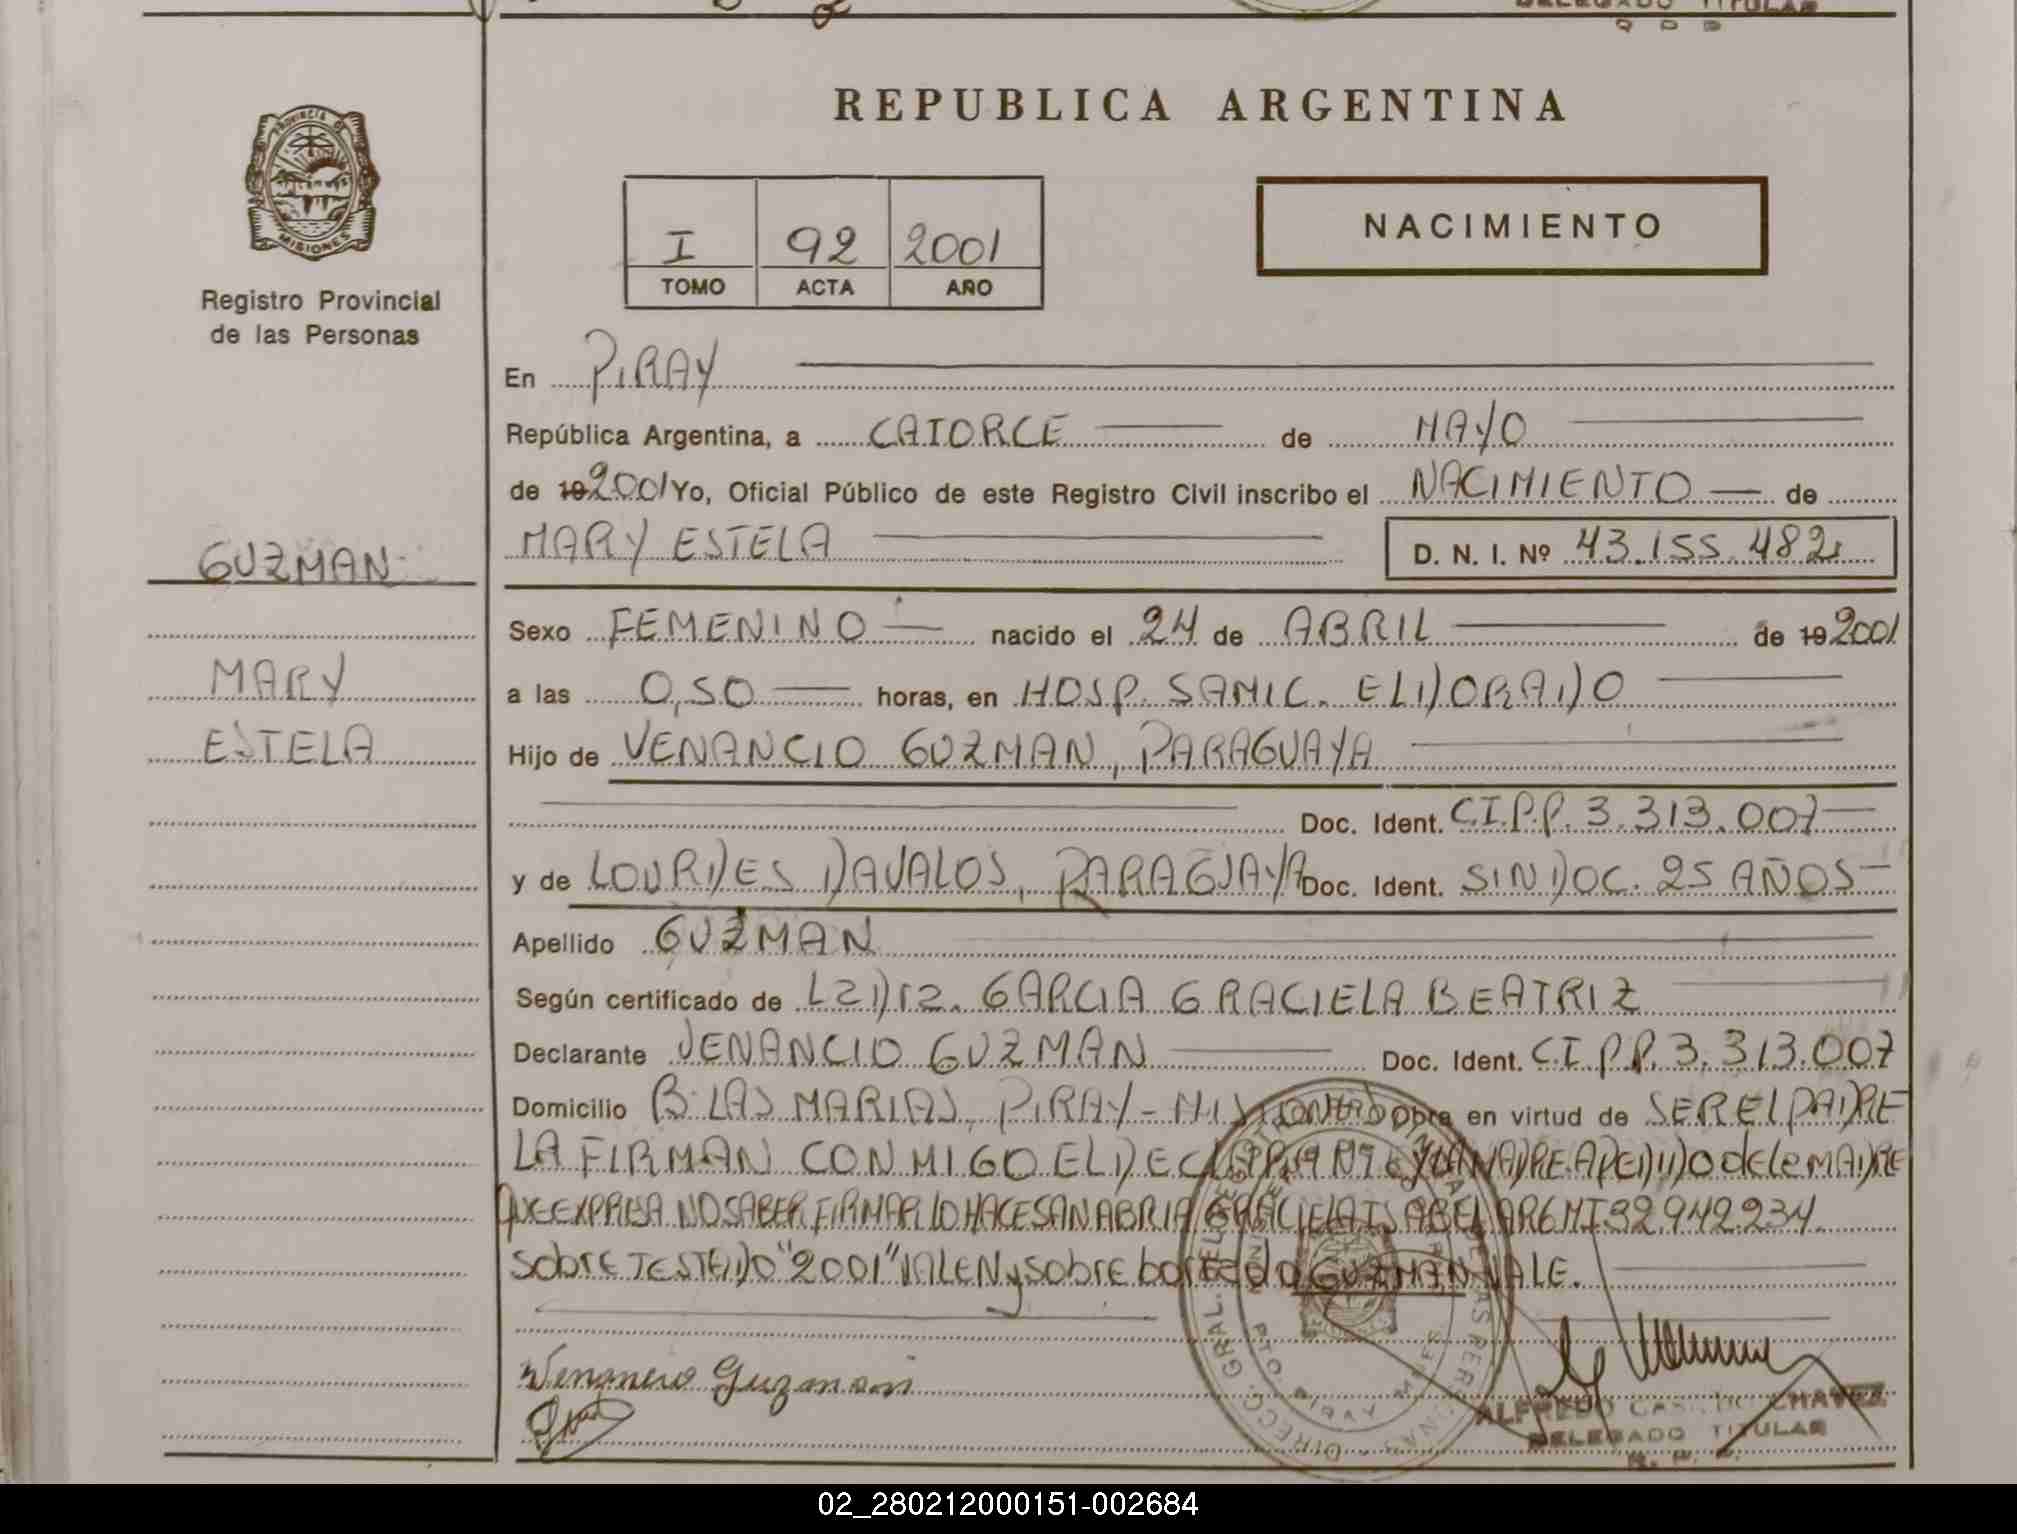 DELEGADO TITULAR
PROVINCIA DE
MISIONES
Registro Provincial
de las Personas
REPUBLICA ARGENTINA
I 92 2001
TOMO ACTA AÑO
NACIMIENTO
En PIRAY
República Argentina, a CATORCE de MAYO
de 19 2001 Yo, Oficial Público de este Registro Civil inscribo el NACIMIENTO de
MARY ESTELA D. N. I. Nº 43.155.482
GUZMAN
MARY
ESTELA
Sexo FEMENINO nacido el 24 de ABRIL de 19 2001
a las 0,50 horas, en HOSP. SAMIC. ELDORADO
Hijo de VENANCIO GUZMAN, PARAGUAYA
Doc. Ident. C.I.P.P. 3.313.007
y de LOURDES DAVALOS, PARAGUAYA Doc. Ident. SIN DOC. 25 AÑOS
Apellido GUZMAN
Según certificado de GARCIA GRACIELA BEATRIZ
Declarante VENANCIO GUZMAN Doc. Ident. C.I.P.P. 3.313.007
Domicilio B. LAS MARIAS, PIRAY - MISIONES Obra en virtud de SER EL PADRE
LA FIRMAN CONMIGO EL DECLARANTE Y LA MADRE. A PEDIDO de la MADRE
QUE EXPRESA NO SABER FIRMAR LO HACE SANABRIA GRACIELA ISABEL ARG MI 32.942.234
Sobre TESTADO "2001" VALEN y sobre borrado GUZMAN VALE.
Venancio Guzman
ALFREDO CHAVEZ
DELEGADO TITULAR
02_280212000151-002684